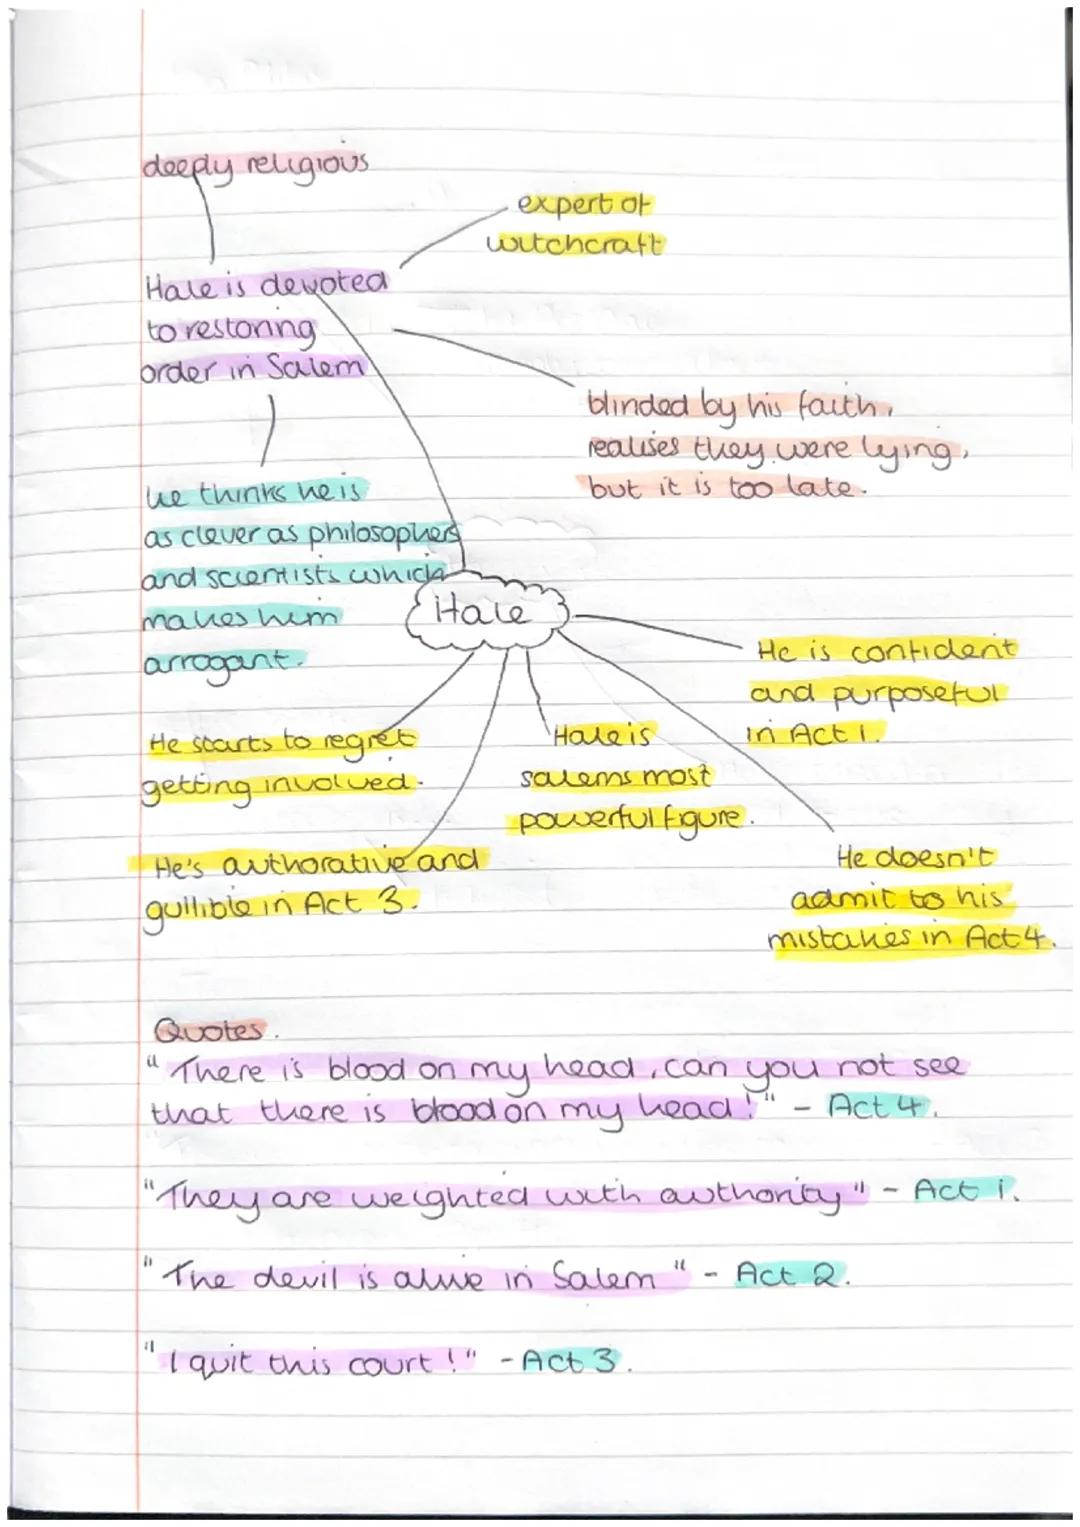 deeply religious
expert of
witchcraft
Hale is devoted
to restoring
order in Salem
blinded by his faith,
realises they were lying,
but it is too late.
he thinks he is
as clever as philosophers
and scientists which
makes him
arrogant.
Hale
He is confident
and purposeful
in Act 1.
He starts to regret
getting involved.
Hale is
salems most
powerful figure.
He's authorative and
gullible in Act 3.
He doesn't
admit to his
mistakes in Act 4.
Quotes.
"There is blood on my head, can you not see
that there is blood on my head!" - Act 4.
"They are weighted with authority" - Act 1.
"The devil is alive in Salem" - Act 2.
"I quit this court!" - Act 3.